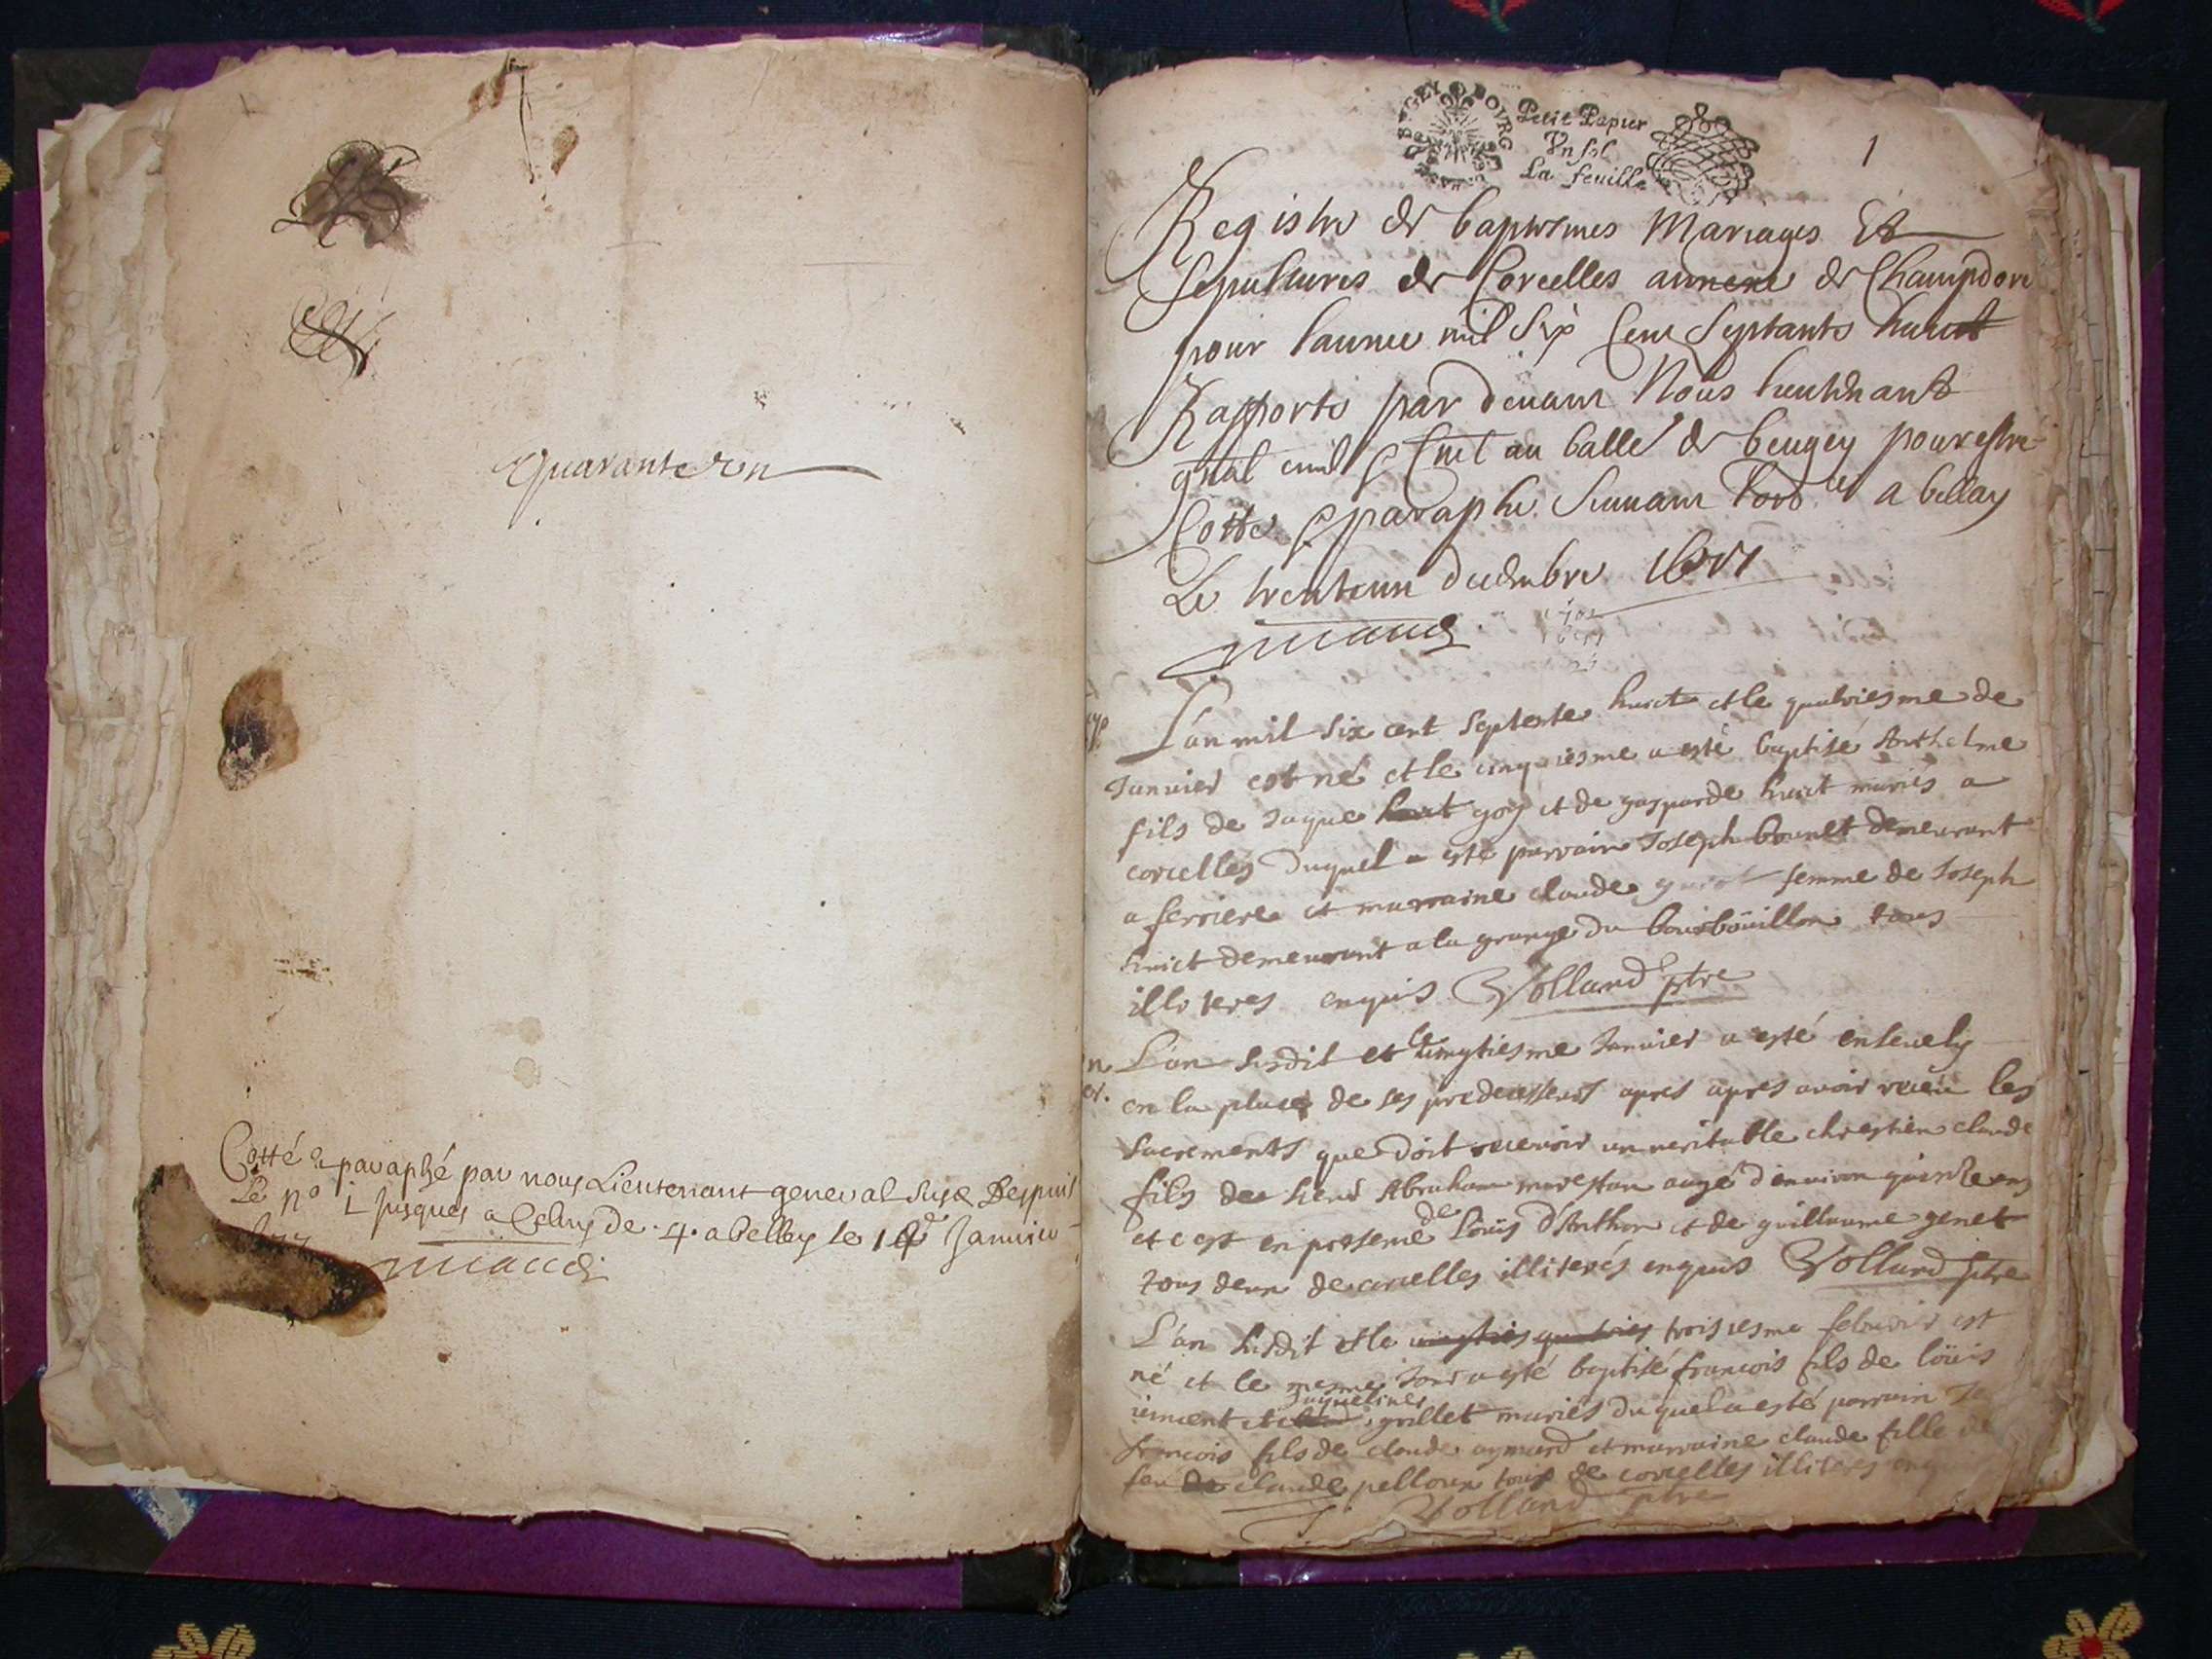 quarante un
Cotté & paraphé par nous Lieutenant general susd Despuis
Le n° 1 jusques a Celuy de .4. a belley le Janvier
BOVRG
Petit Papier
Vn sol
La feuille
1
Registre de baptesmes Mariages Et
sepultures de Corcelles annexe de Champdore
pour l'année mil six Cent septante huict
Rapporté par devant Nous lieutenant
gñal civil & Cruel au balle de beugey pour estre
Cotté & paraphé suivant l'ord a bellay
Le trente un decembre 1677
L'an mil six cent septente huict et le quatriesme de
Januier est né et le cinquiesme a esté baptisé Anthelme
fils de Jaque goy et de gasparde huict mariés a
corcelles duquel a esté parrain Joseph bonnet demeurant
a ferriere et marraine claude femme de Joseph
huict demeurant a la grange du bourboüillon tous
illiteres enquis Volland ptre
L'an susdit et le vingtiesme Januier a esté enseuely
en la place de ses predecesseurs apres apres avoir receu les
sacrements que doit recevoir un veritable chrestien claude
fils de sieur Abraham aagé d'environ quinze ans
et c'est en presence de Loüis d'Anthon et de guillaume genet
tous deux de corcelles illiterés enquis Volland ptre
L'an susdit et le troisiesme februier est
né et le mesme Jour a esté baptisé francois fils de loüis
et Jaqueline grillet mariés duquel a esté parrain
francois fils de claude aymard et marraine claude fille de
feu claude pelloux tous de corcelles illiteres
Volland ptre